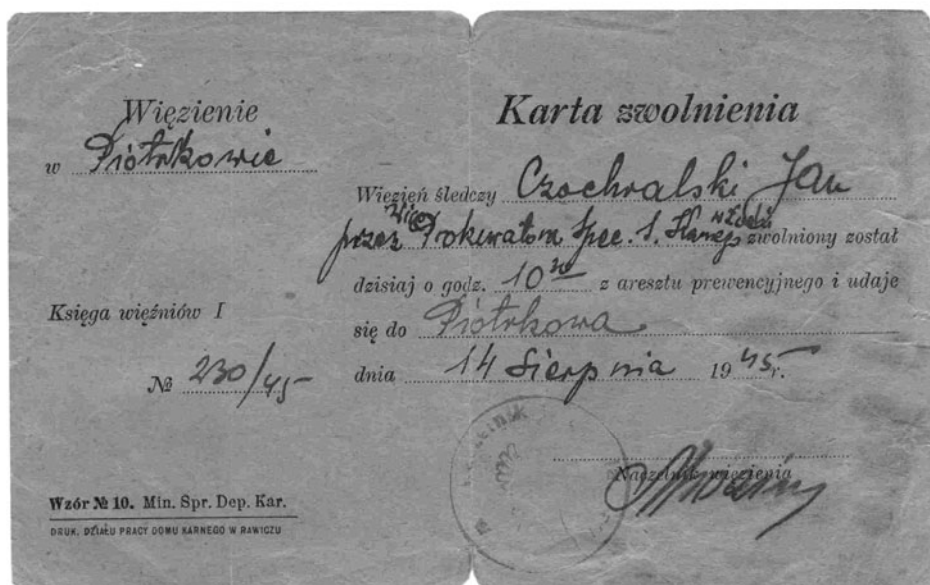 Więzienie
w Piotrkowie
Księga więźniów I
№ 230/45
Wzór № 10. Min. Spr. Dep. Kar.
DRUK. DZIAŁU PRACY DOMU KARNEGO W RAWICZU
Karta zwolnienia
Więzień śledczy Czochralski Jan
przez Wice Prokuratora Spec. S. Karnego w Łodzi zwolniony został
dzisiaj o godz. 10 z aresztu prewencyjnego i udaje
się do Piotrkowa
dnia 14 Sierpnia 1945 r.
Naczelnik więzienia